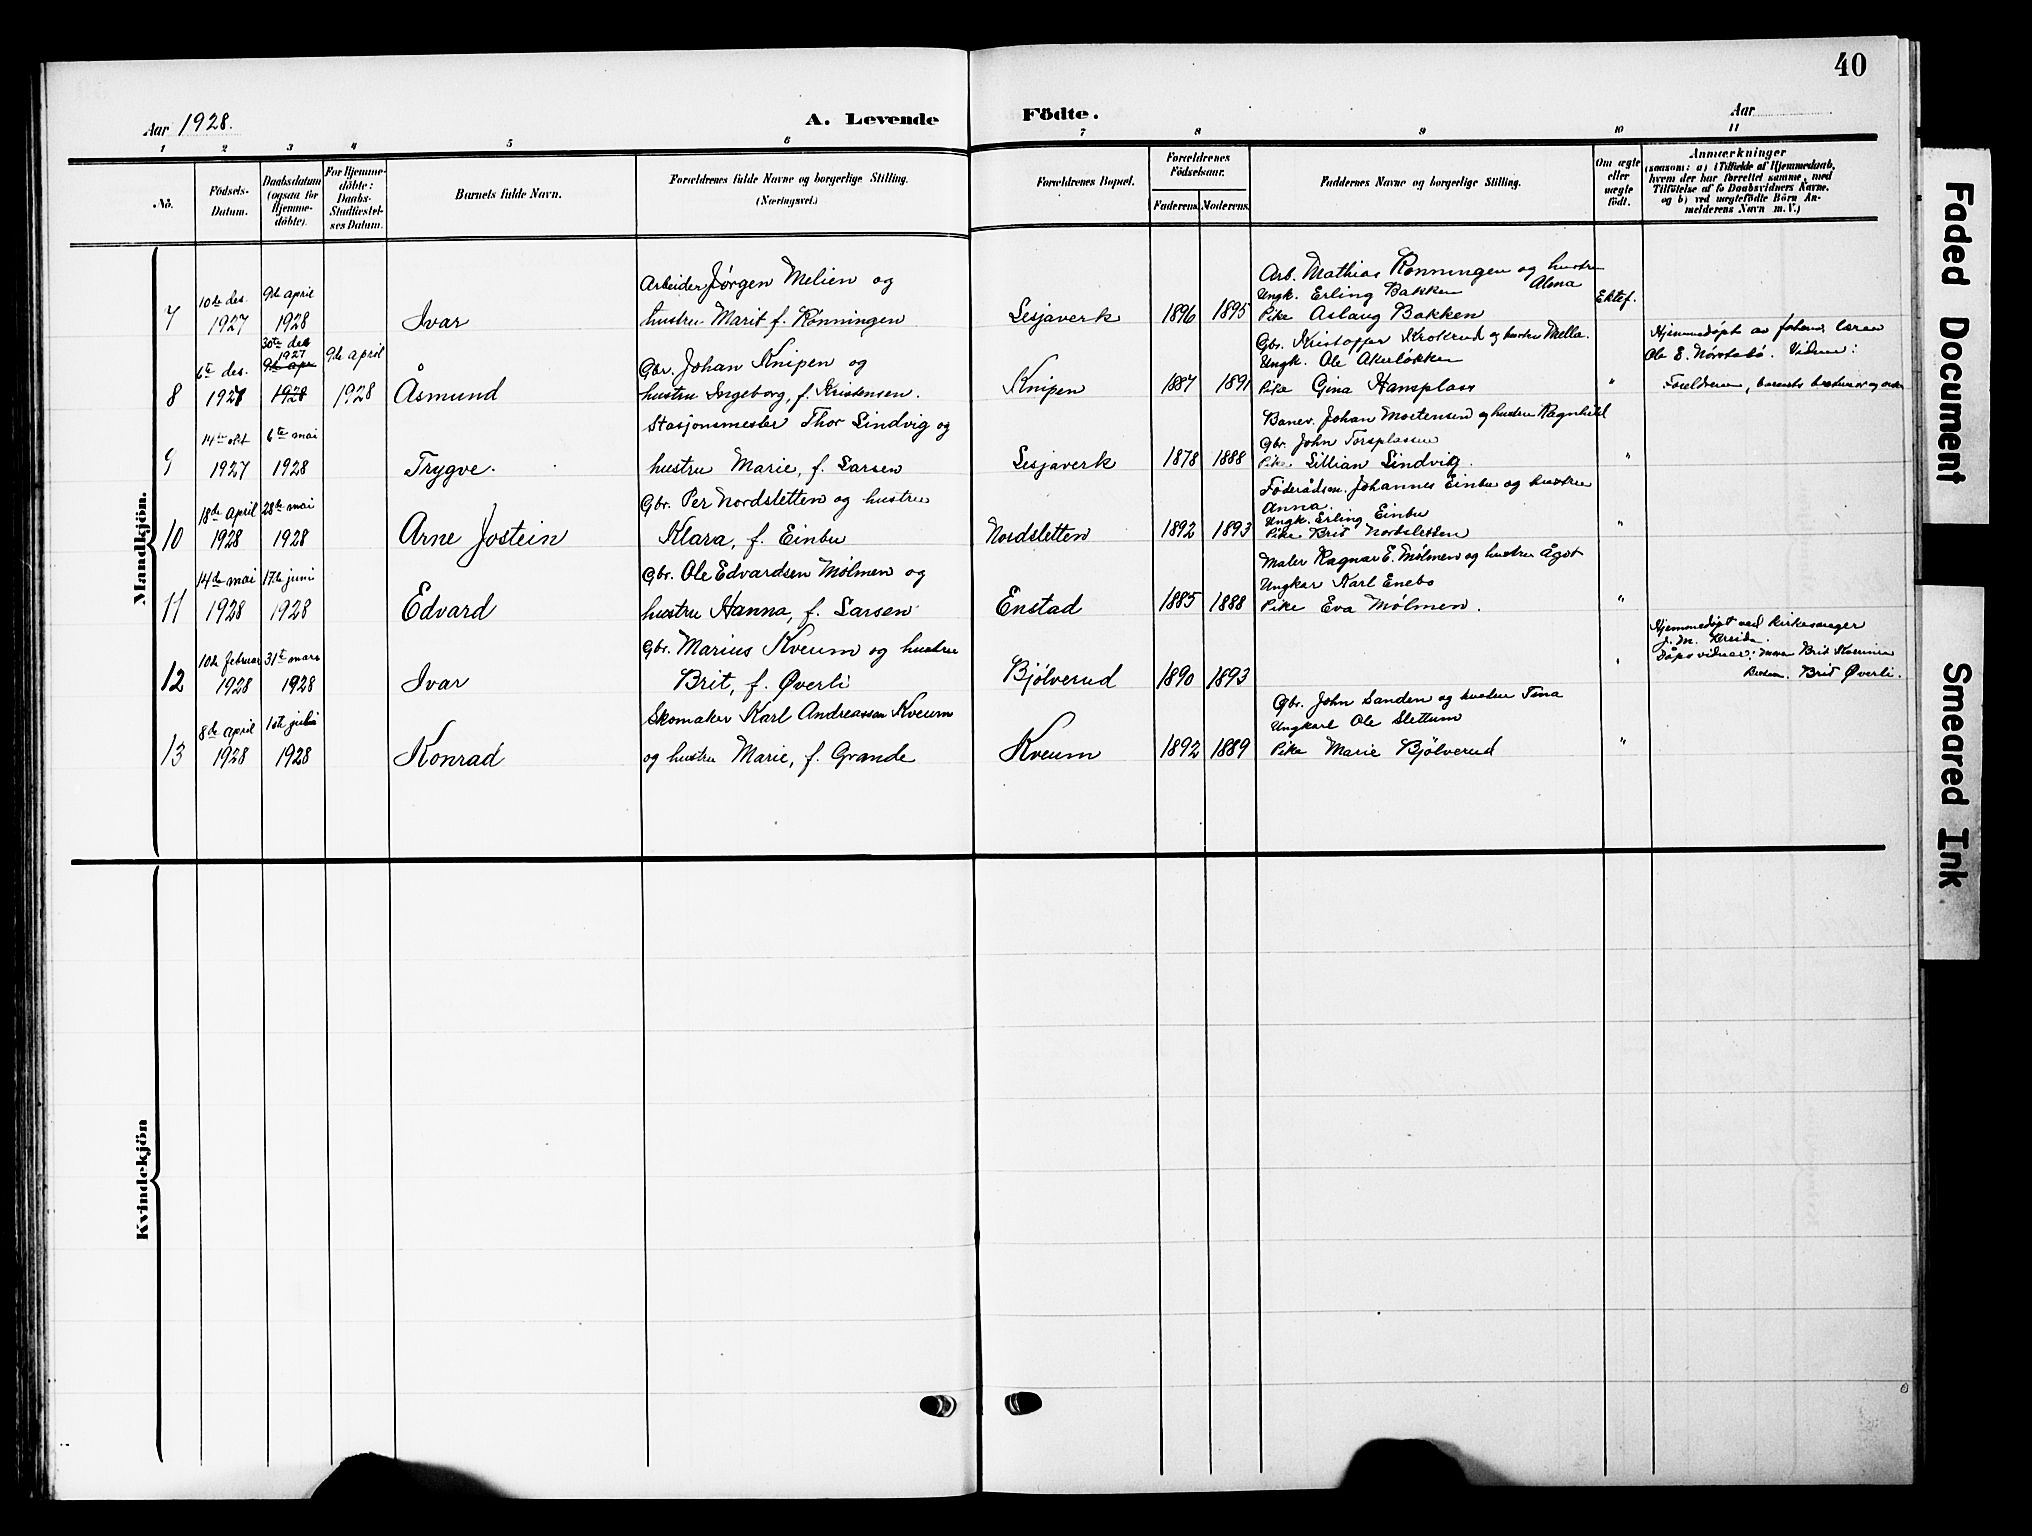 40
Aar 1928.
A. Levende Födte.
Aar
1 2 3 4 5 6 7 8 9 10 11
No.
Födsels-Datum.
Daabsdatum (ogsaa for Hjemme-döbte).
For Hjemme-döbte: Daabs-Stadfæstel-ses Datum.
Barnets fulde Navn.
Forældrenes fulde Navne og borgerlige Stilling. (Næringsvei.)
Forældrenes Bopæl.
Forældrenes Födselsaar.
Faderens. Moderens.
Faddernes Navne og borgerlige Stilling.
Om ægte eller uægte födt.
Anmærkninger
(saasom: a) i Tilfælde af Hjemmedaab, hvem der har forrettet samme, med Tilföielse af to Daabsvidners Navne, og b) ved uægtefödte Börn An-melderens Navn m. V.)
Mandkjön.
7
10de des. 1927
9de april 1928
Ivar
Arbeider Jørgen Melien og
hustru Marit f. Rønningen
Lesjaverk
1896 1895
Arb. Mathias Rønningen og hustru Alma
Ungk. Erling Bakken
Pike Aslaug Bakken
Ektef.
8
6te des. 1927
30te des 1927
9de apr 1928
9de april 1928
Åsmund
Gbr. Johan Knipen og
hustru Ingeborg, f. Kristensen.
Knipen
1887 1891
Gbr. Kristoffer Krokrud og hustru Mella.
Ungk. Ole Akerløkken
Pike Gina Hansplass
"
Hjemmedøpt av forhenv. lærer
Ole E. Nørstebø. Vidner:
Foreldrene, barnets
9
14de okt 1927
6te mai 1928
Trygve.
Stasjonsmester Thor Lindvig og
hustru Marie, f. Larsen
Lesjaverk
1878 1888
Banev. Johan Mortensen og hustru Ragnhild
Gbr. John Torsplassen
Pike Lillian Lindvig.
"
10
18de april 1928
28de mai 1928
Arne Jostein
Gbr. Per Nordsletten og hustru
Klara, f. Einbu
Nordsletten
1892 1893
Føderådsm. Johannes Einbu og hustru
Anna.
Ungk. Erling Einbu
Pike Brit Nordsletten
"
11
14de mai 1928
17de juni 1928
Edvard
Gbr. Ole Edvardsen Mølmen og
hustru Hanna, f. Larsen
Enstad
1885 1888
Maler Ragnar E. Mølmen og hustru Ågot
Ungkar Karl Enebo
Pike Eva Mølmen.
"
12
10de februar 1928
31te mars 1928
Ivar
Gbr. Marius Kveum og hustru
Brit, f. Øverli
Bjølverud
1890 1893
"
Hjemmedøpt ved kirkesanger
Døpsvidner: Brit
Brit Øverli.
13
8de april 1928
1ste juli 1928
Konrad
Skomaker Karl Andreassen Kveum
og hustru Marie, f. Grande
Kveum
1892 1889
Gbr. John Sanden og hustru Tina
Ungkarl Ole Slettum
Pike Marie Bjølverud
"
Kvindekjön
Faded Document
Smeared Ink